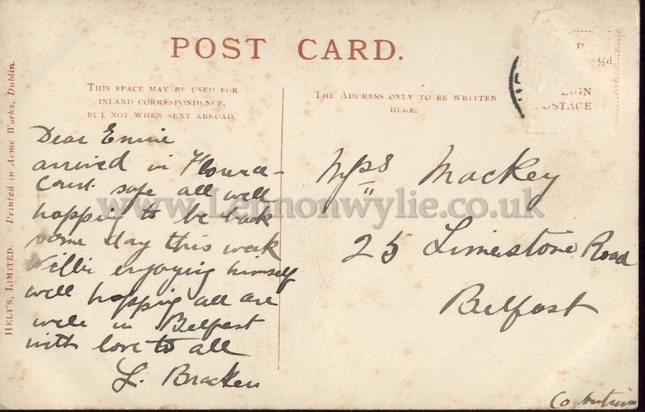 POST CARD.
THIS SPACE MAY BE USED FOR
INLAND CORRESPONDENCE,
BUT NOT WHEN SENT ABROAD.
THE ADDRESS ONLY TO BE WRITTEN
HERE.
½d
POSTAGE
HELY'S, LIMITED. Printed in Acme Works, Dublin.
Dear
arrived in Florence-
Court safe all well
hopping to be back
some day this week
Willie enjoying himself
well hopping all are
well in Belfast
with love to all
L. Bracken
Mrs Mackey
25 Limestone Road
Belfast
Co Antrim
www.Lennonwylie.co.uk